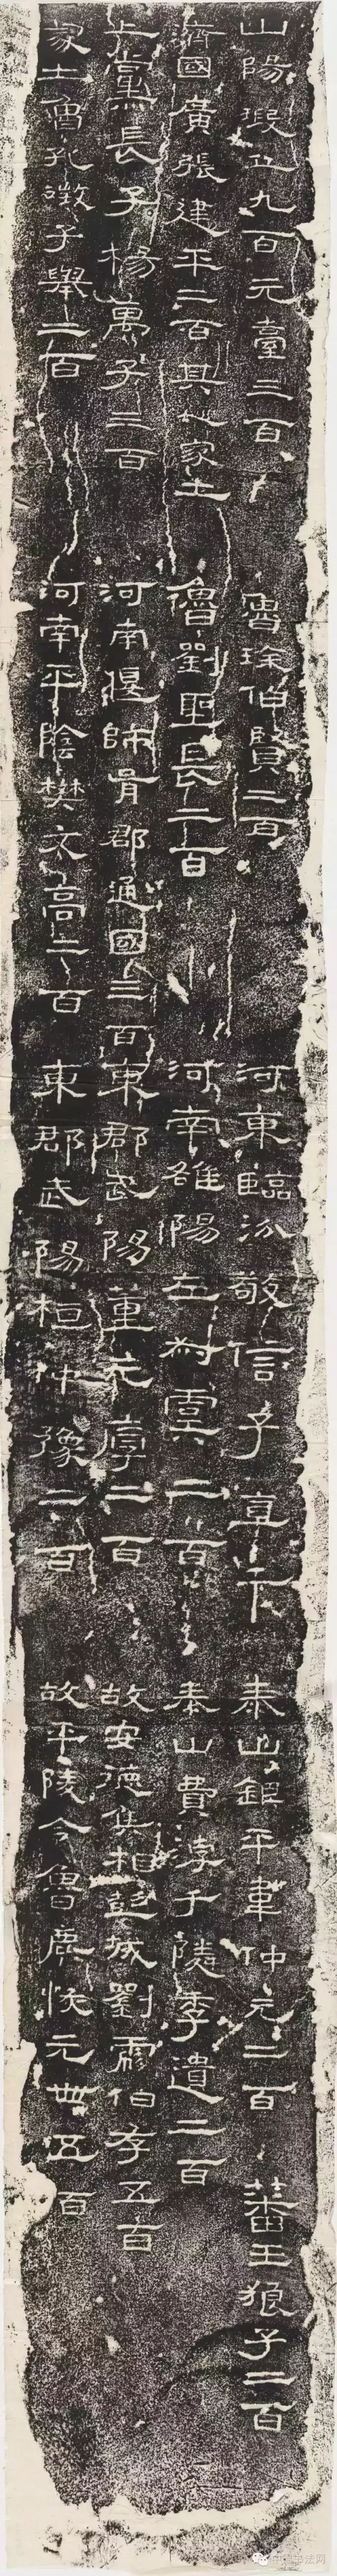 山陽瑕丘九百元臺三百 魯徐伯賢二百 河東臨汾敬信子直千 泰山鉅平韋仲元二百 蕃王狼子二百
濟國廣張建平二百其人處士 魯劉聖長二百 河南雒陽左叔虞二百 泰山費淳于隣季遺二百
上黨長子楊萬子三百 河南偃師胥鄰通國三百 東郡武陽董元厚二百 故安德侯相彭城劉彪伯存五百
處士魯孔徵子舉二百 河南平陰樊文高二百 東郡武陽桓仲豫二百 故平陵令魯麃恢元世五百